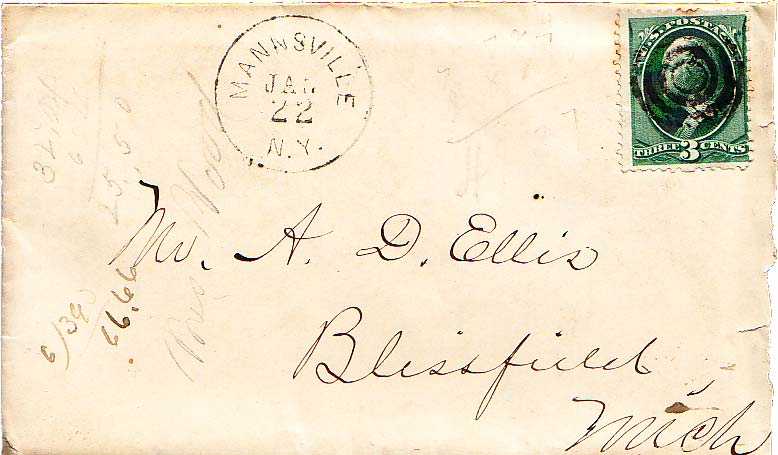 MANNSVILLE
JAN
22
N.Y.
U.S. POSTAGE
THREE 3 CENTS
Mr. A. D. Ellis
Blissfield,
Mich
25.50
6
6)390
66.66